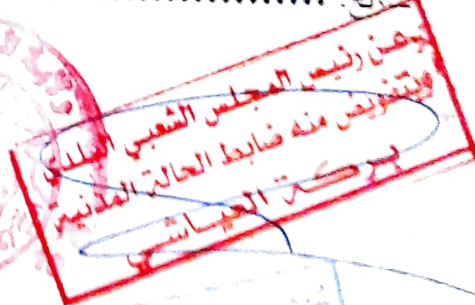 عن رئيس المجلس الشعبي البلدي
وبتفويض منه ضابط الحالة المدنية
بركة العياشي